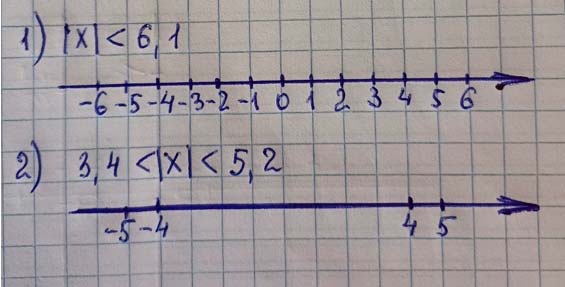 1) |x| < 6,1
-6 -5 -4 -3 -2 -1 0 1 2 3 4 5 6
2) 3,4 < |x| < 5,2
-5 -4 4 5